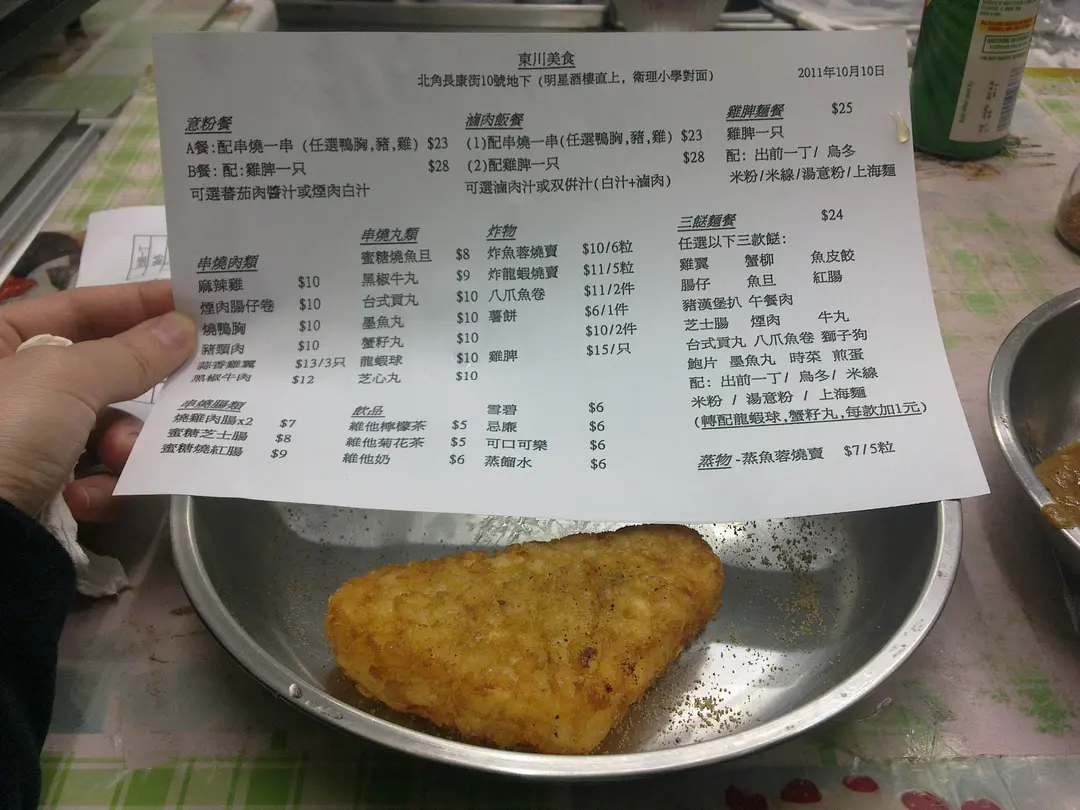 東川美食
北角長康街10號地下 (明星酒樓直上, 衛理小學對面)
2011年10月10日
意粉餐
A餐:配串燒一串 (任選鴨胸,豬,雞) $23
B餐: 配:雞脾一只 $28
可選蕃茄肉醬汁或煙肉白汁
滷肉飯餐
(1)配串燒一串(任選鴨胸,豬,雞) $23
(2)配雞脾一只 $28
可選滷肉汁或双併汁(白汁+滷肉)
雞脾麵餐 $25
雞脾一只
配: 出前一丁/ 烏冬
米粉/米線/湯意粉/上海麵
串燒肉類
麻辣雞 $10
煙肉腸仔卷 $10
燒鴨胸 $10
豬頸肉 $10
蒜香雞翼 $13/3只
黑椒牛肉 $12
串燒丸類
蜜糖燒魚旦 $8
黑椒牛丸 $9
台式貢丸 $10
墨魚丸 $10
蟹籽丸 $10
龍蝦球 $10
芝心丸 $10
炸物
炸魚蓉燒賣 $10/6粒
炸龍蝦燒賣 $11/5粒
八爪魚卷 $11/2件
薯餅 $6/1件
$10/2件
雞脾 $15/只
三餸麵餐 $24
任選以下三款餸:
雞翼 蟹柳 魚皮餃
腸仔 魚旦 紅腸
豬漢堡扒 午餐肉
芝士腸 煙肉 牛丸
台式貢丸 八爪魚卷 獅子狗
鮑片 墨魚丸 時菜 煎蛋
配: 出前一丁/ 烏冬/ 米線
米粉 / 湯意粉 / 上海麵
(轉配龍蝦球,蟹籽丸,每款加1元)
串燒腸類
燒雞肉腸x2 $7
蜜糖芝士腸 $8
蜜糖燒紅腸 $9
飲品
維他檸檬茶 $5
維他菊花茶 $5
維他奶 $6
雪碧 $6
忌廉 $6
可口可樂 $6
蒸餾水 $6
蒸物-蒸魚蓉燒賣 $7/5粒